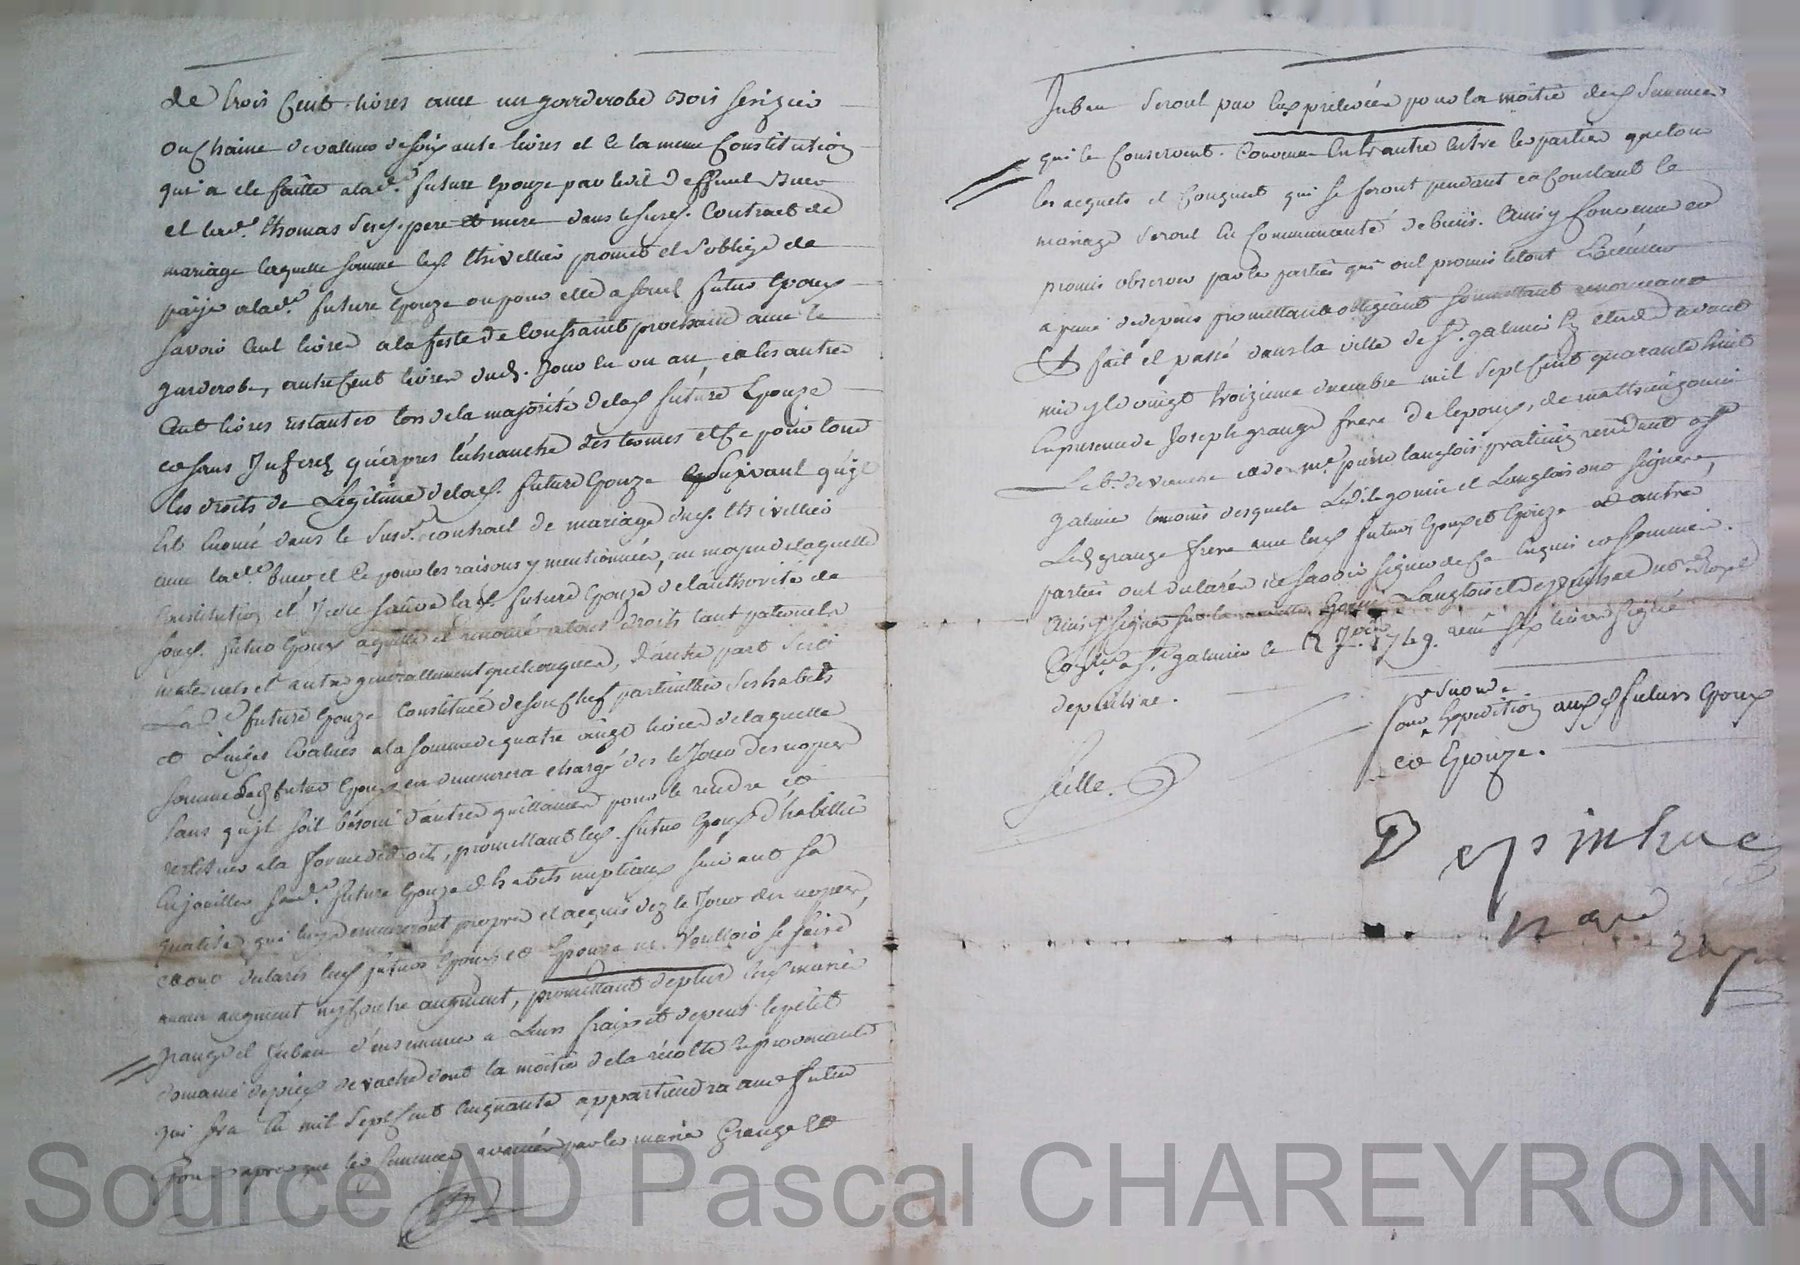 de trois Cent livres avec un garderobe Bois serizier
ou Chaine de valleur de soixante livres et ce la meme Constitution
qui a été faitte a lad.e future Epouze par led. deffunt
et lad.e thomas ses pere et mere dans le susd. Contract de
mariage laquelle somme led. thivellier promet et s'oblige de
paÿer a lad.e future Epouze ou pour elle a sond. futur Epoux
savoir Cent livres a la feste de toussaint prochain avec le
garderobe, autre Cent livres dud. Jour en un an et les autres
Cent livres restantes lors de la majorité de lad. future Epouze
et sans Interest qu'apres l'echeance des termes et ce pour tous
les droits de Legitime de lad. future Epouze suivant qu'il
Est Enoncé dans le susd. contract de mariage dud. thivellier
avec lad.e et ce pour les raisons y mentionnées, au moyen de laquelle
Constitution et lad. future Epouze de l'authorité de
sond. futur Epoux a quitté et renoncé a tous droits tant paternels
maternels et autres generallement quelconques, d'autre part s'est
Lad.e future Epouze Constituée de son Chef particullier ses habits
et Linges Evalués a la somme de quatre vingt livres de laquelle
somme led. futur Epoux en demeurera chargé dès le Jour des nopces
sans qu'il soit besoin d'autre quittance pour le rendre et
restituer a la forme de droit, promettant led. futur Epoux d'habiller
Enjoailler sad.e future Epouze d'habits nuptiaux suivant sa
qualité qui luy demeureront propres et acquis dez le Jour des nopces,
et ont declaré lesd. futurs Epoux et Epouze ne Voulloir se faire
aucun augment ny contre augment, promettant de plus lesd. mariés
grange et Juban d'ensemencer a Leurs fraix et depens le petit
domaine de vache dont la moitié de la récolte en provenant
qui sera En mil sept Cent Cinquante appartiendra aud. futur
Epoux apres que les semences avancées par les mariés Grange et
Juban seront par Eux prélevées pour la moitié des semences
qui le Concernent. Convenu En outre Entre les parties que tous
les acquets et Conquets qui se feront pendant et Constant le
mariage seront En Communauté de biens. Ainsy Convenu et
promis observer par les parties qui ont promis le tout Executer
a peine de depens promettant obligeant soumettant renonceant
& fait et passé dans la ville de St. galmier En Etude avant
midy le vingt troizieme decembre mil sept Cent quarante huit
En presence de Joseph grange frere de l'epoux, de matthieu gonin
et de me. pierre langlois praticien residant a St
galmier temoins desquels Led. gonin et Langlois ont signé,
Led. grange frere avec lesd. futurs Epoux et Epouze et autres
parties ont declaré ne savoir signer de ce Enquis et sommés.
Ainsy signé sur la minutte Gonin Langlois et depinhac no.re Royal
Con.lé a St. galmier le 2 Jer 1749. reçu six livres signé
depinhac.
pre Grosse
pour Expedition auxd futurs Epoux
et Epouze.
Depinhac
n.re Royal
Source AD Pascal CHAREYRON